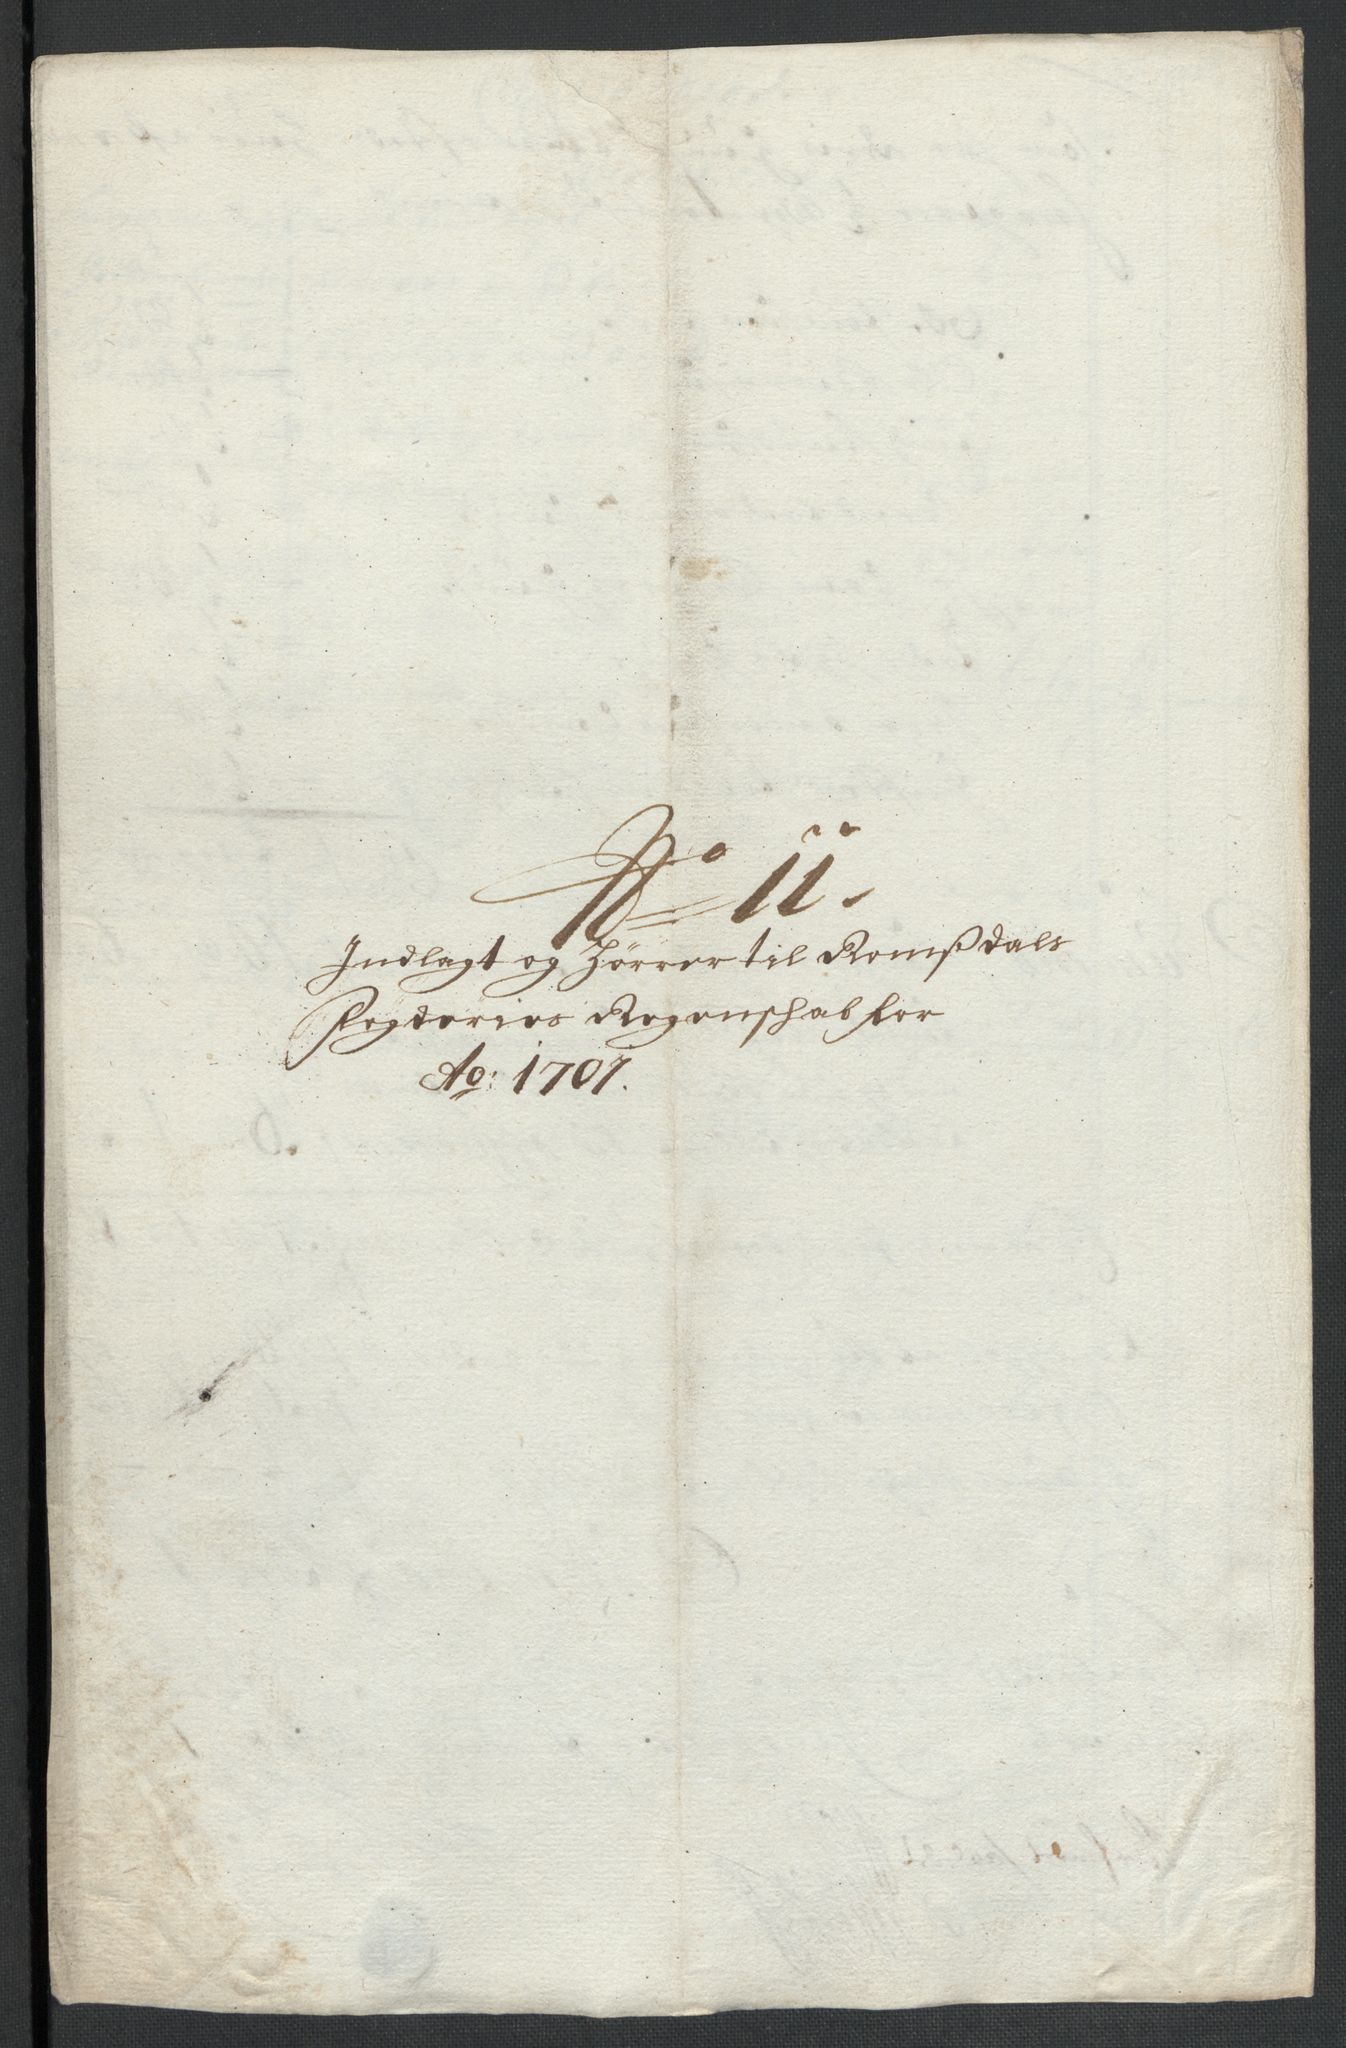 No 11.
Indlagt og hörrer til Romßdals
Fogderies Regenschab for
Ao: 1707.